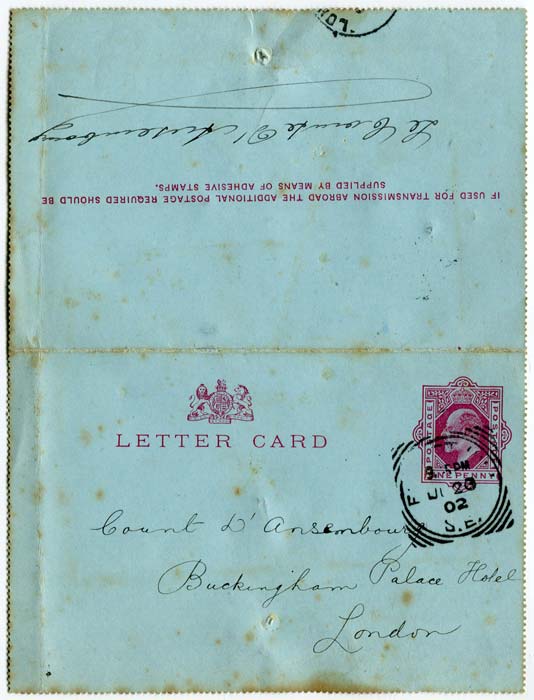 IF USED FOR TRANSMISSION ABROAD THE ADDITIONAL POSTAGE REQUIRED SHOULD BE
SUPPLIED BY MEANS OF ADHESIVE STAMPS.
Le Comte D'Ansembourg
LETTER CARD
POSTAGE
POSTAGE
ONE PENNY
PM
26
02
S.E.
Count D'Ansembourg
Buckingham Palace Hotel
London